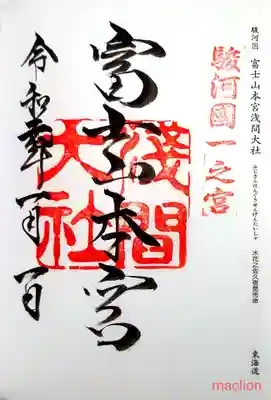 駿河国 富士山本宮浅間大社
ふじさんほんぐうせんげんたいしゃ
木花之佐久夜毘売命
東海道
駿河國一之宮
富士山本宮
淺間大社
令和 年 一月 一日
maclion